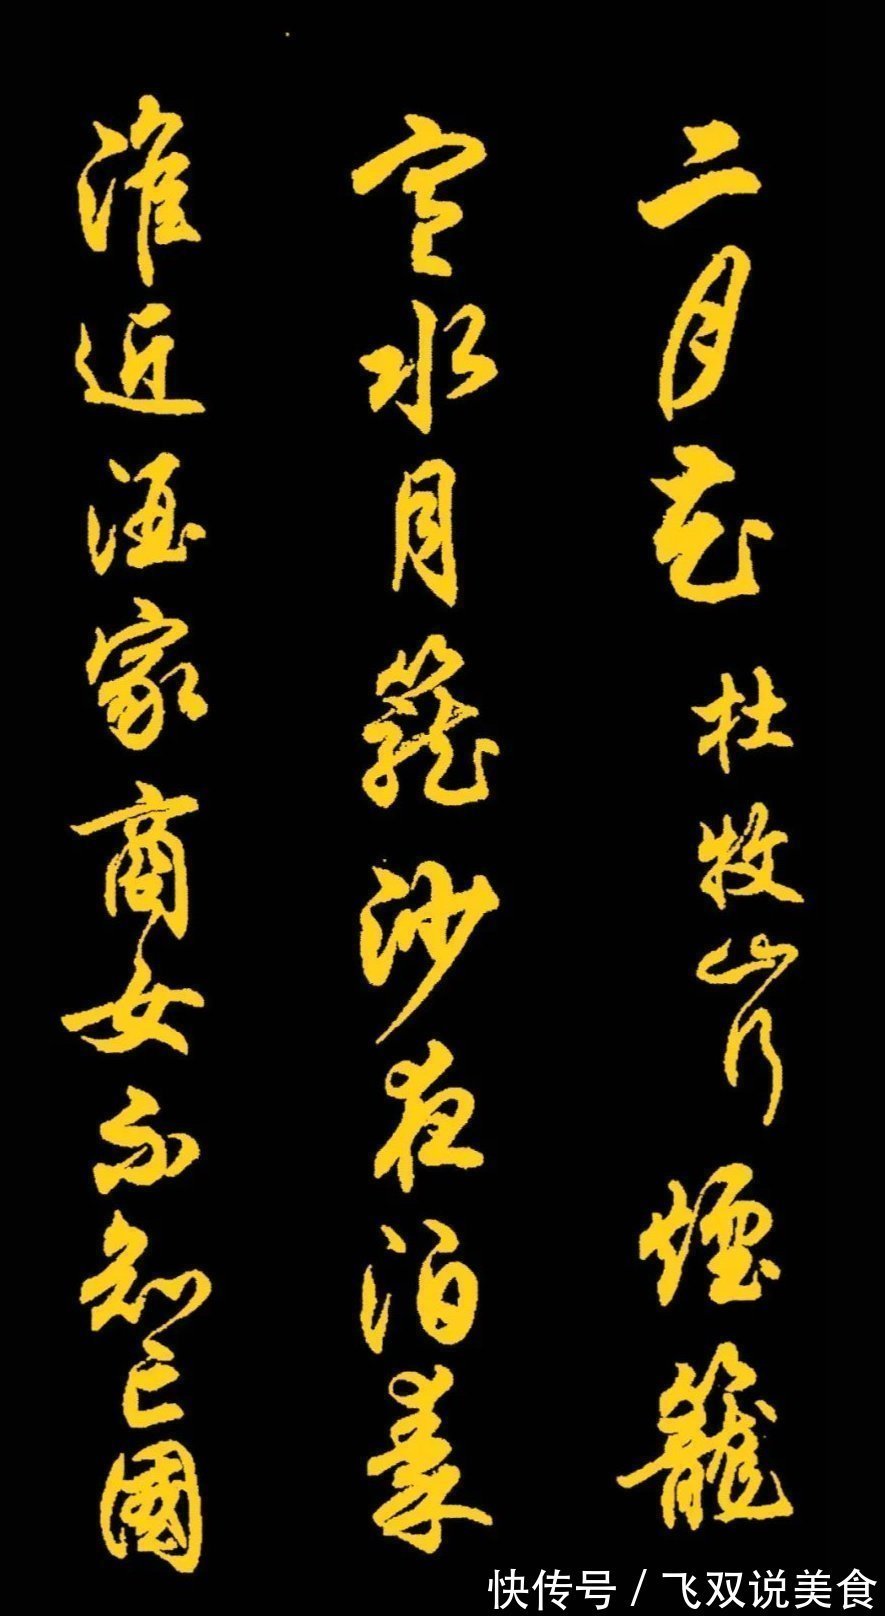 二月花 杜牧山行 煙籠
寒水月籠沙夜泊秦
淮近酒家商女不知亡國
快传号 / 飞双说美食